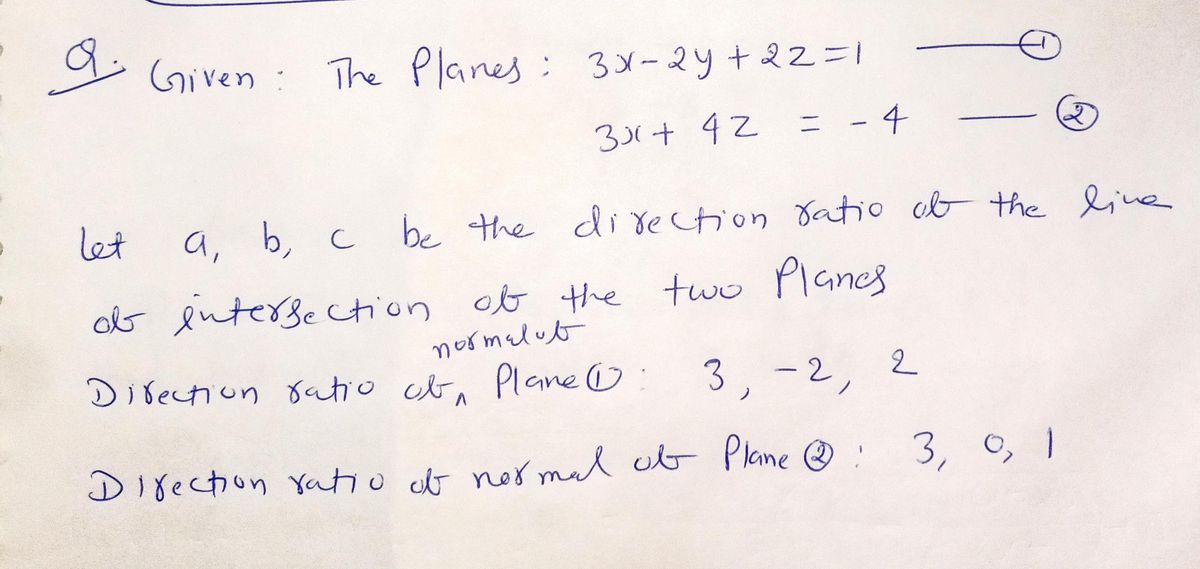 Q. Given : The Planes : 3x - 2y + 2z = 1 —— ①
3x + 4z = - 4 —— ②
Let a, b, c be the direction ratio of the line
of intersection of the two Planes
normal of
Direction ratio of ^ Plane ① : 3, -2, 2
Direction ratio of normal of Plane ② : 3, 0, 1